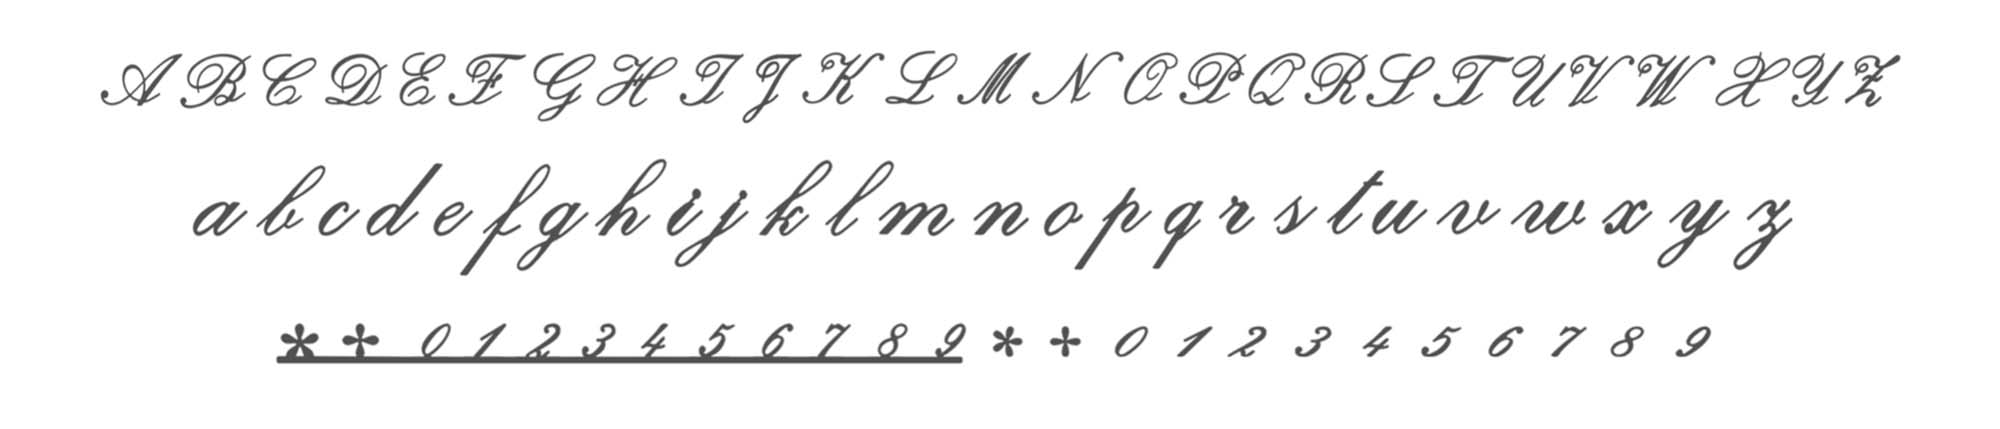 A B C D E F G H I J K L M N O P Q R S T U V W X Y Z
a b c d e f g h i j k l m n o p q r s t u v w x y z
* + 0 1 2 3 4 5 6 7 8 9 * + 0 1 2 3 4 5 6 7 8 9